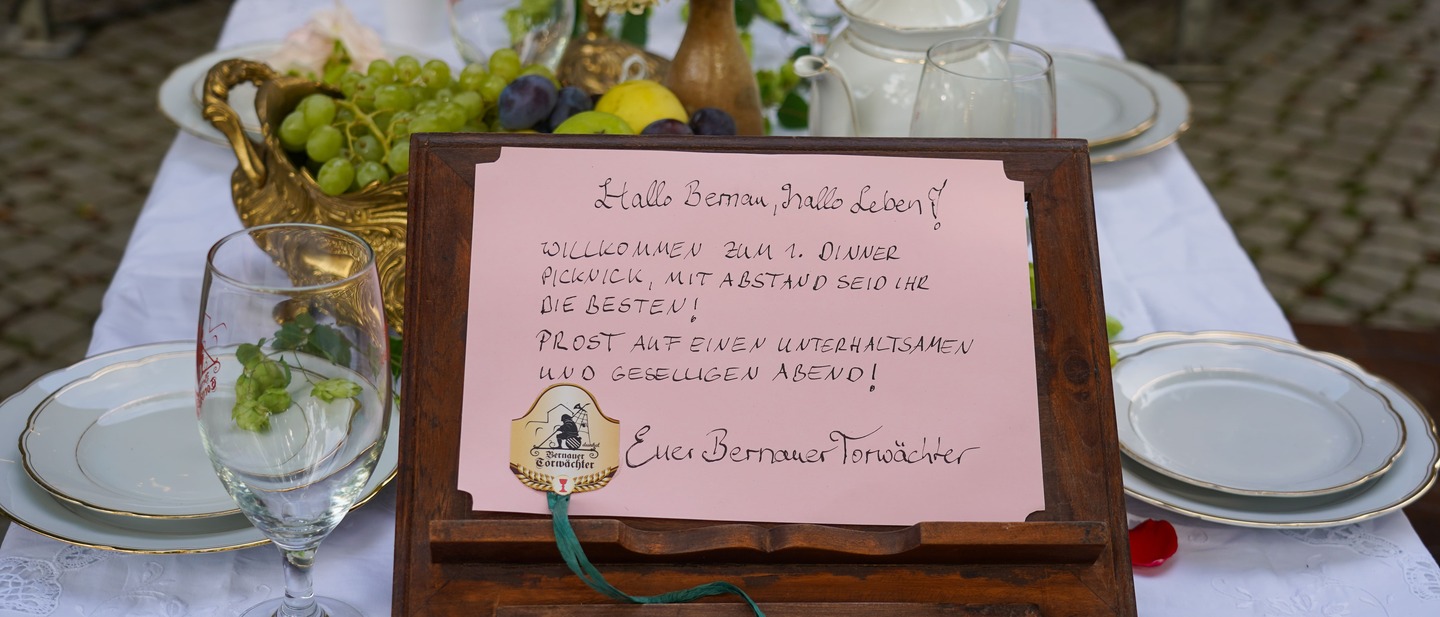 Hallo Bernau, hallo Leben!
WILLKOMMEN ZUM 1. DINNER
PICKNICK, MIT ABSTAND SEID IHR
DIE BESTEN!
PROST AUF EINEN UNTERHALTSAMEN
UND GESELLIGEN ABEND!
Euer Bernauer Torwächter
Bernauer
Torwächter